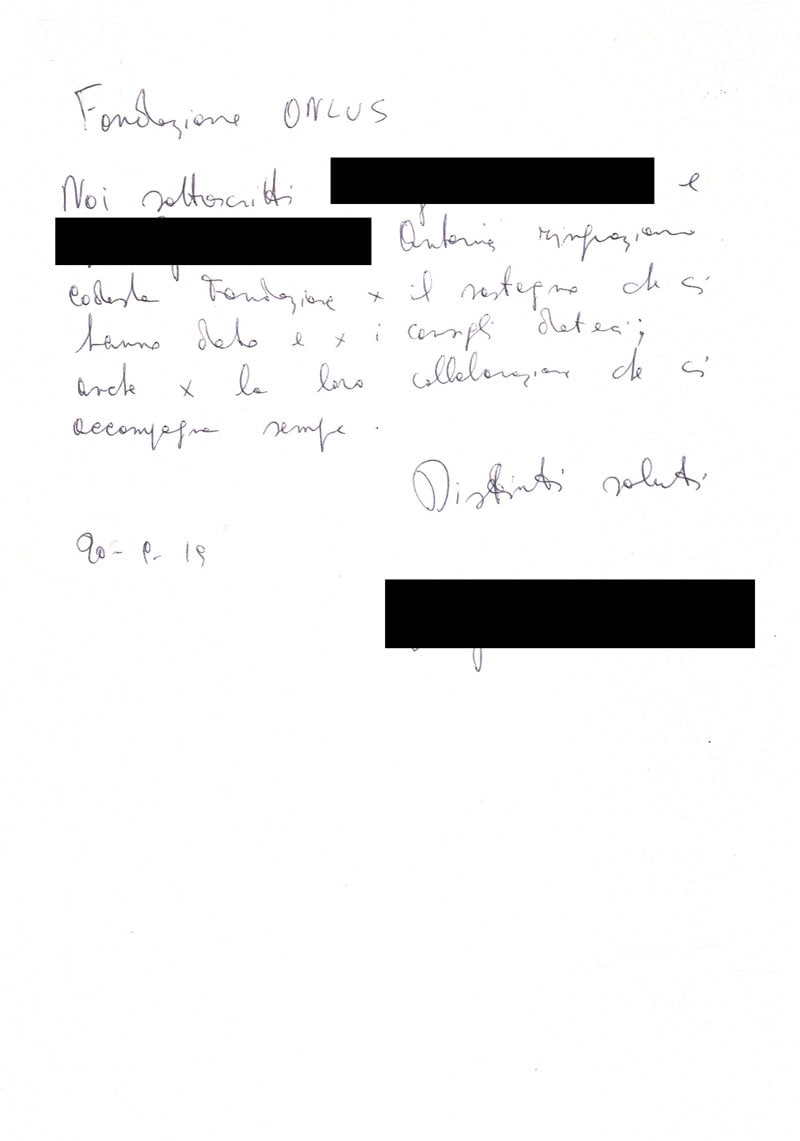 Fondazione ONLUS
Noi sottoscritti e
Antonia ringraziamo
codesta Fondazione x il sostegno che ci
hanno dato e x i consigli dateci;
anche x la loro collaborazione che ci
accompagna sempre.
Distinti saluti